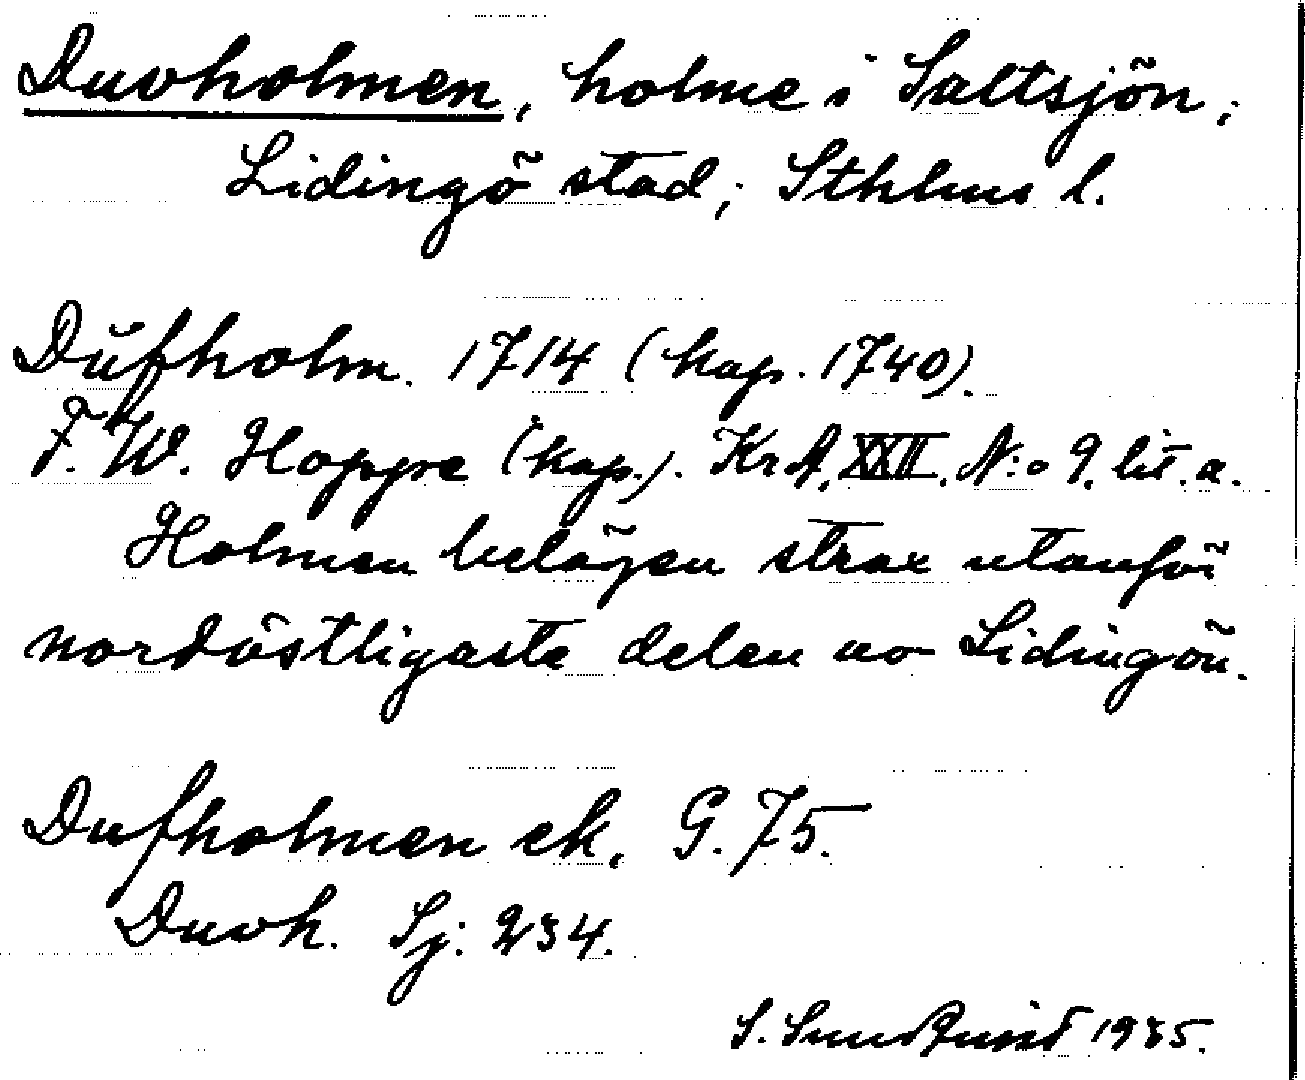 Duvholmen, holme i Saltsjön,
Lidingö stad; Sthlms l.
Dŭfholm. 1714 (kop. 1740).
F. W. Hoppe (kop.). KrA, XXII, N:o 9. lit. a.
Holmen belägen strax utanför
nordöstligaste delen av Lidingön.
Dufholmen ek. G. 75.
Duvh. Sj: 234.
S. 1935.